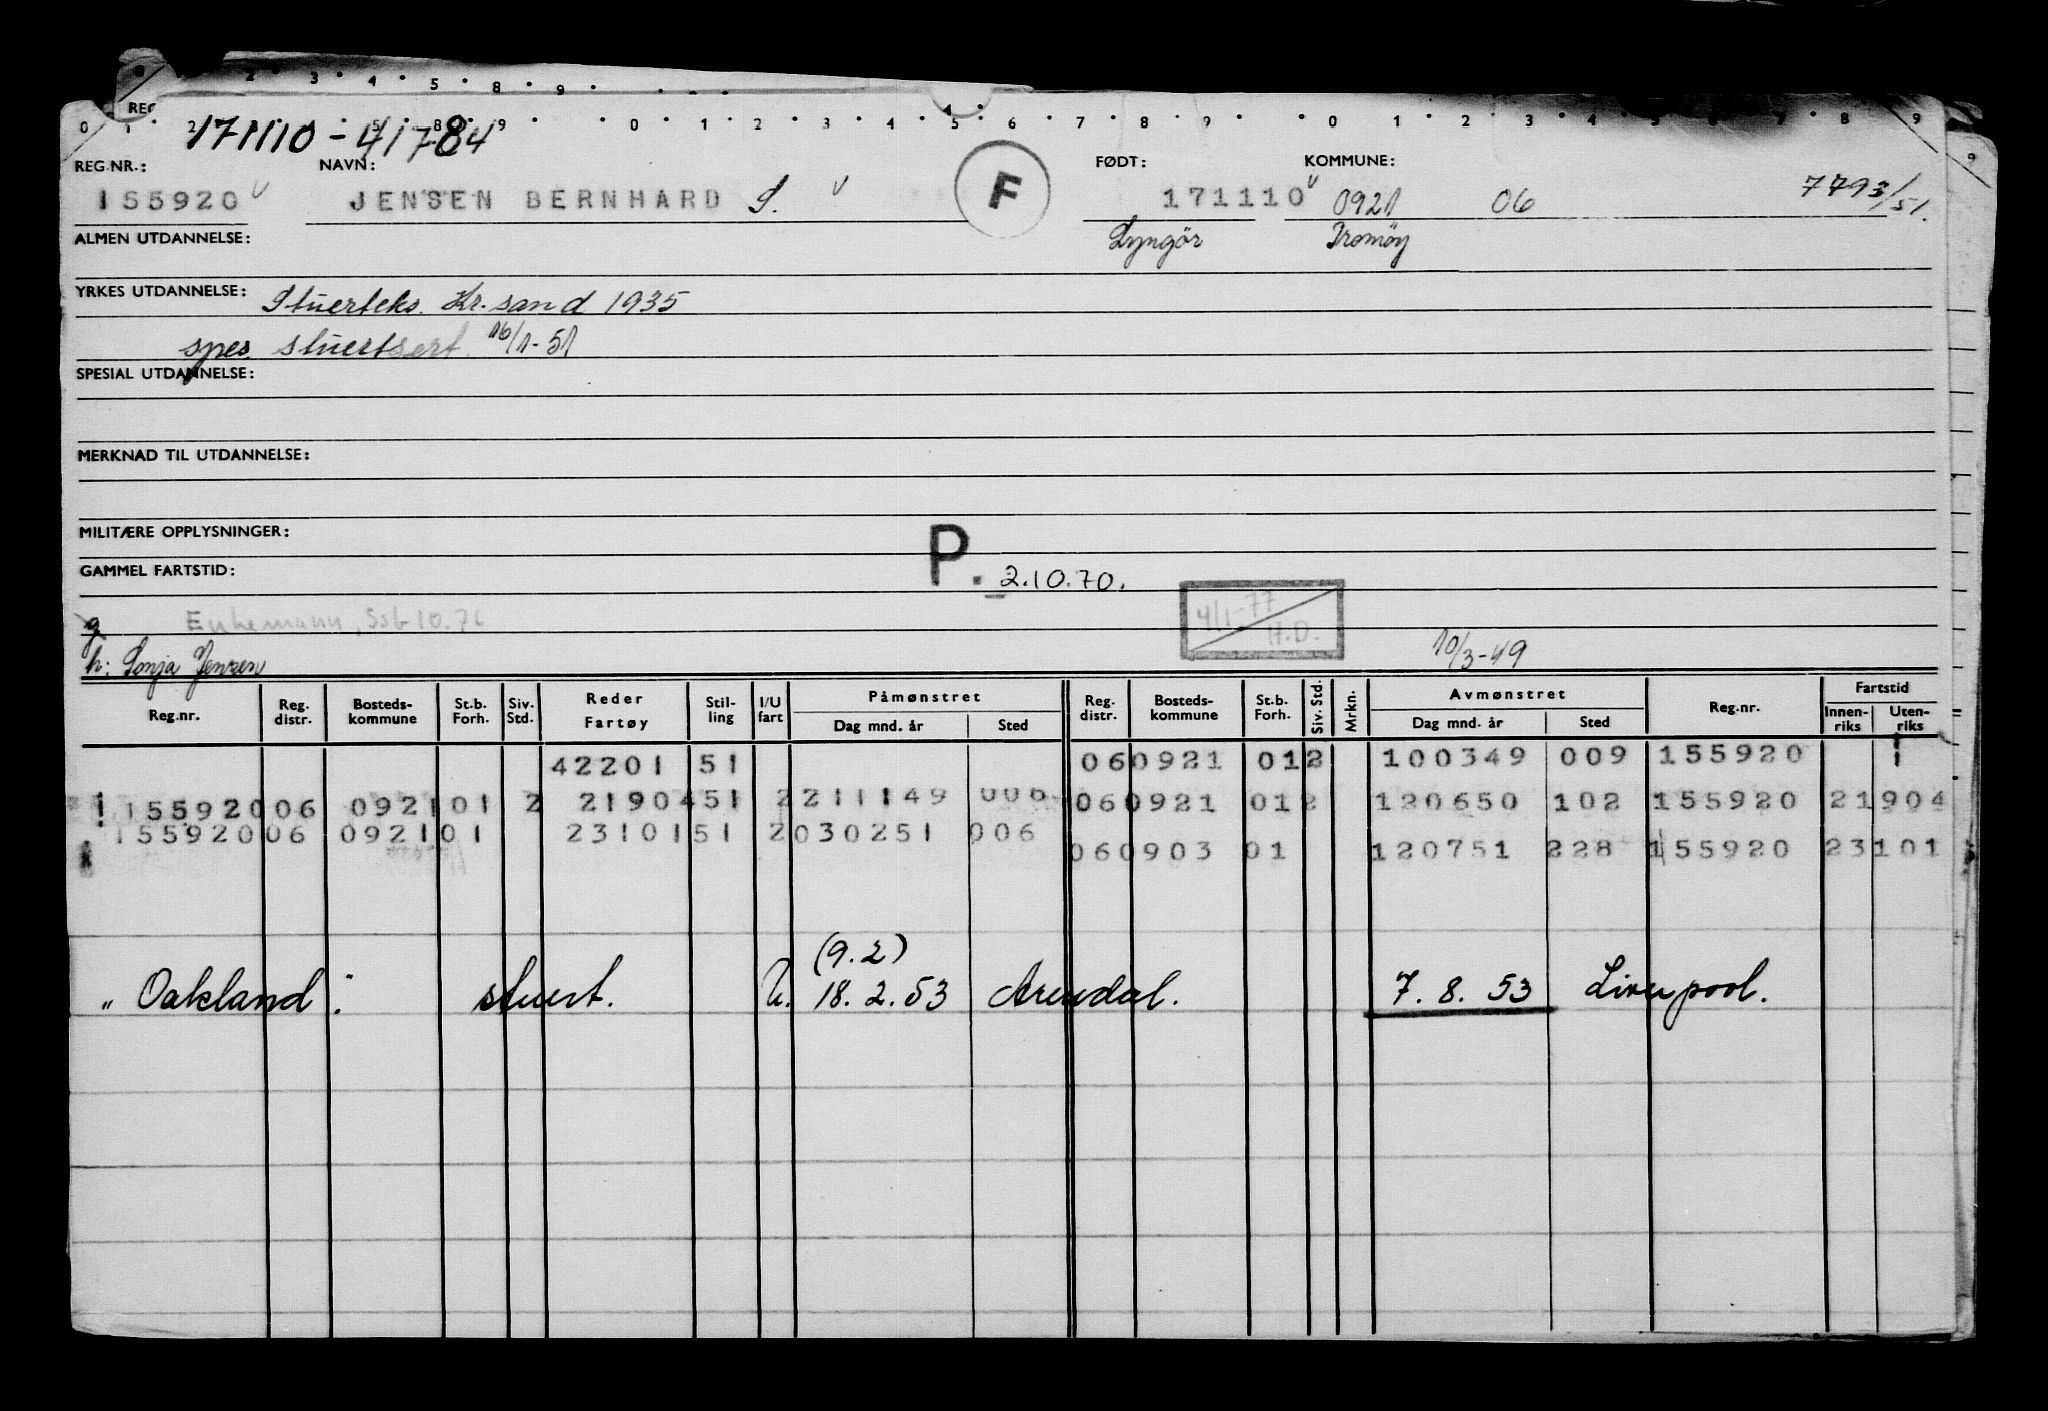 2 3 4 5 8 9
REG
0 1 2 5 8 9 0 1 2 3 4 5 6 7 8 9 0 1 2 3 4 5 6 7 8 9
171110 - 41784
REG.NR.: NAVN: FØDT: KOMMUNE:
155920 JENSEN BERNHARD S. F 171110 0921 06 7793/51.
ALMEN UTDANNELSE: Lyngör Tromøy
YRKES UTDANNELSE: Stuerteks. Kr.sand 1935
spes. stuertsert. 16/1-51
SPESIAL UTDANNELSE:
MERKNAD TIL UTDANNELSE:
MILITÆRE OPPLYSNINGER:
GAMMEL FARTSTID: P. 2.10.70.
g Enkemann, 4/1-77
H.D.
h: Sonja Jensen 10/3-49
Reg.nr. Reg. distr. Bosteds- kommune St.b. Forh. Siv. Std. Reder Fartøy Stil- ling I/U fart Påmønstret Dag mnd. år Sted Reg. distr. Bosteds- kommune St.b. Forh. Siv. Std. Mrkn. Avmønstret Dag mnd. år Sted Reg.nr. Fartstid Innen- riks Uten- riks
42201 51 06 0921 01 2 100349 009 155920 1
155920 06 0921 01 2 21904 51 2 211149 006 06 0921 01 2 120650 102 155920 21904
155920 06 0921 01 23101 51 2 030251 006 06 0903 01 120751 228 155920 23101
(9.2)
"Oakland". stuert. U. 18.2.53 Arendal. 7.8.53 Liverpool.